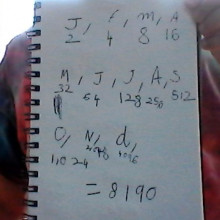 J, F, M, A
2 4 8 16
M, J, J, A, S
32 64 128 256 512
O, N, d,
1,024 2048 4096
= 8190